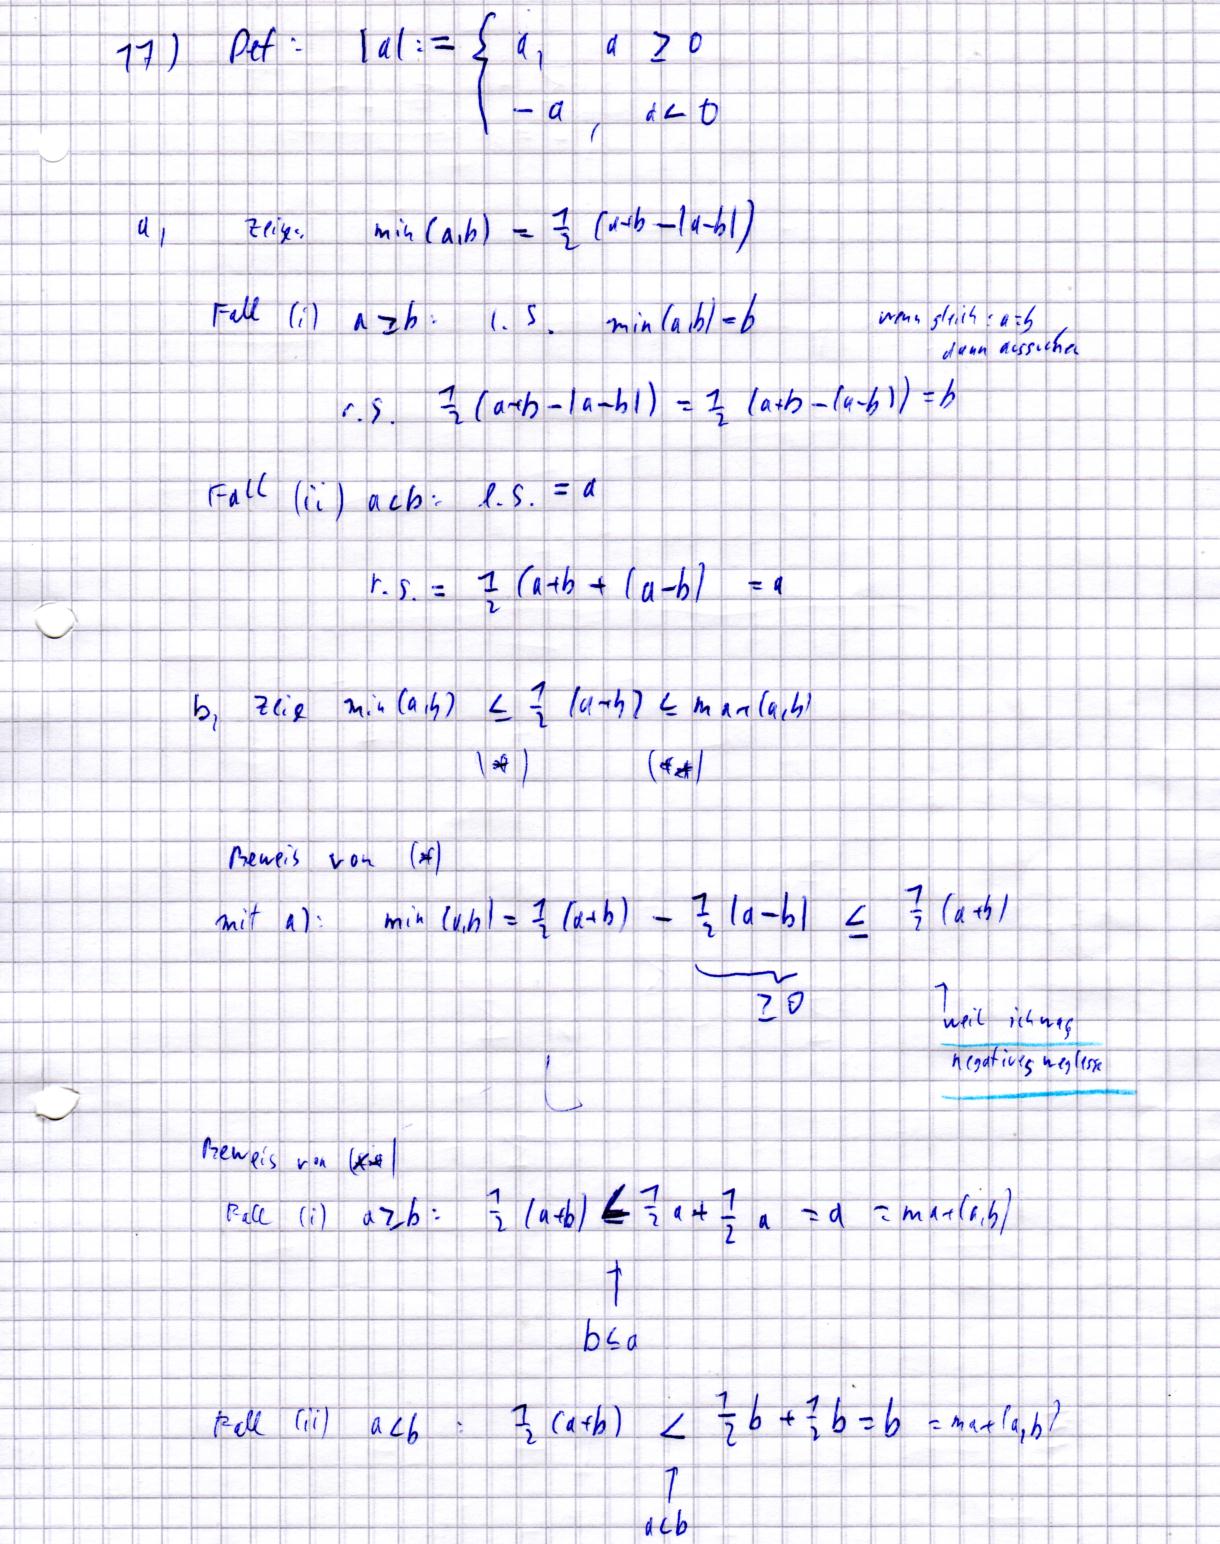 11) Def: |a| := { a, a ≥ 0
-a, a < 0
a, Zeige: min(a,b) = 1/2 (a+b - |a-b|)
Fall (i) a ≥ b: l.S. min(a,b) = b wenn gleich: a=b
dann aussuchen
r.S. 1/2 (a+b - |a-b|) = 1/2 (a+b - (a-b)) = b
Fall (ii) a<b: l.S. = a
r.S. = 1/2 (a+b + (a-b) = a
b, Zeige min(a,b) ≤ 1/2 (a+b) ≤ max(a,b)
(*) (**)
Beweis von (*)
mit a): min(a,b) = 1/2 (a+b) - 1/2 |a-b| ≤ 1/2 (a+b)
≥ 0
↑ weil ich was
negatives weglasse
Beweis von (**)
Fall (i) a ≥ b: 1/2 (a+b) ≤ 1/2 a + 1/2 a = a = max(a,b)
↑
b ≤ a
Fall (ii) a<b : 1/2 (a+b) < 1/2 b + 1/2 b = b = max(a,b)
↑
a<b